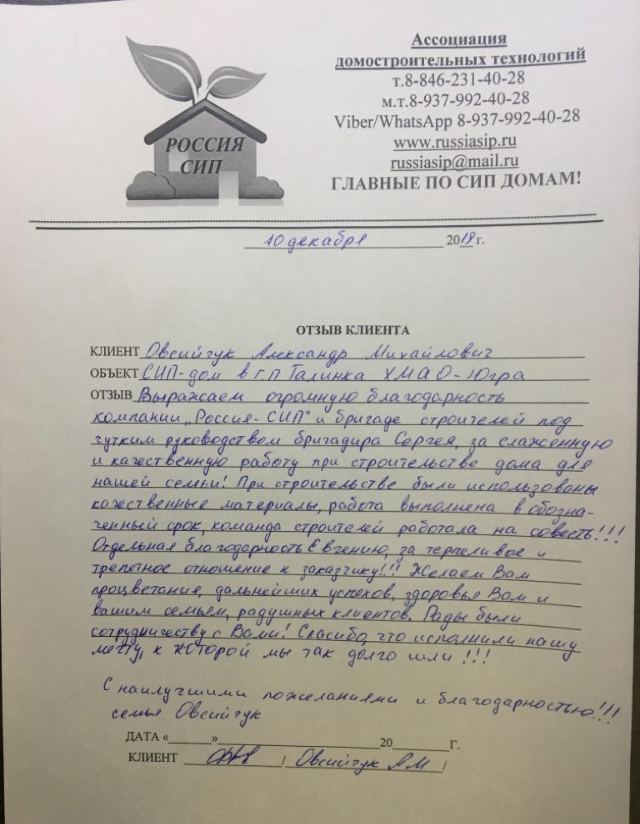 РОССИЯ
СИП
Ассоциация
домостроительных технологий
т.8-846-231-40-28
м.т.8-937-992-40-28
Viber/WhatsApp 8-937-992-40-28
www.russiasip.ru
russiasip@mail.ru
ГЛАВНЫЕ ПО СИП ДОМАМ!
10 декабря 2018 г.
ОТЗЫВ КЛИЕНТА
КЛИЕНТ Овсийчук Александр Михайлович
ОБЪЕКТ СИП-дом в г.п Талинка ХМАО-Югра
ОТЗЫВ Выражаем огромную благодарность
компании „Россия-СИП" и бригаде строителей под
чутким руководством бригадира Сергея, за слаженную
и качественную работу при строительстве дома для
нашей семьи! При строительстве были использованы
качественные материалы, работа выполнена в обозна-
ченный срок, команда строителей работала на совесть!!!
Отдельная благодарность Евгению, за терпеливое и
трепетное отношение к заказчику!!! Желаем Вам
процветания, дальнейших успехов, здоровья Вам и
вашим семьям, радушных клиентов. Рады были
сотрудничеству с Вами! Спасибо, что исполнили нашу
мечту, к которой мы так долго шли !!!
С наилучшими пожеланиями и благодарностью!!!
семья Овсийчук
ДАТА «______»________________________20________г.
КЛИЕНТ / Овсийчук АМ /